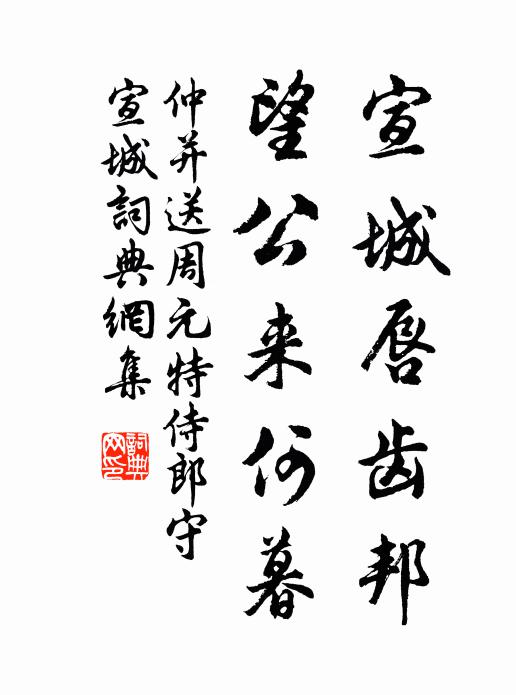 宣城唇齿邦
望公来何暮
仲并送周元特侍郎守
宣城詞典網集
詞典网印